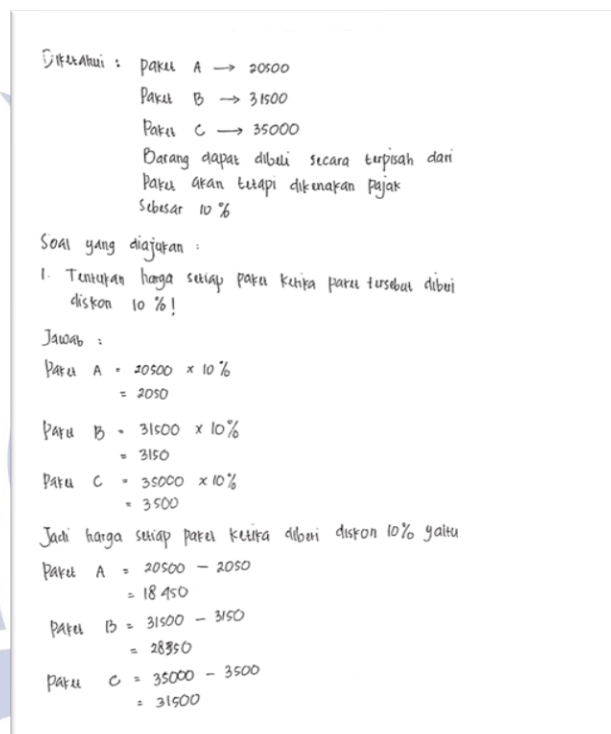 Diketahui : paket A → 20500
Paket B → 31500
Paket C → 35000
Barang dapat dibeli secara terpisah dari
Paket akan tetapi dikenakan pajak
Sebesar 10 %
Soal yang diajukan :
1. Tentukan harga setiap paket ketika paket tersebut diberi
diskon 10 %!
Jawab :
Paket A = 20500 x 10 %
= 2050
Paket B = 31500 x 10%
= 3150
Paket C = 35000 x 10%
= 3500
Jadi harga setiap paket ketika diberi diskon 10% yaitu
Paket A = 20500 - 2050
= 18 450
Paket B = 31500 - 3150
= 28350
Paket C = 35000 - 3500
= 31500